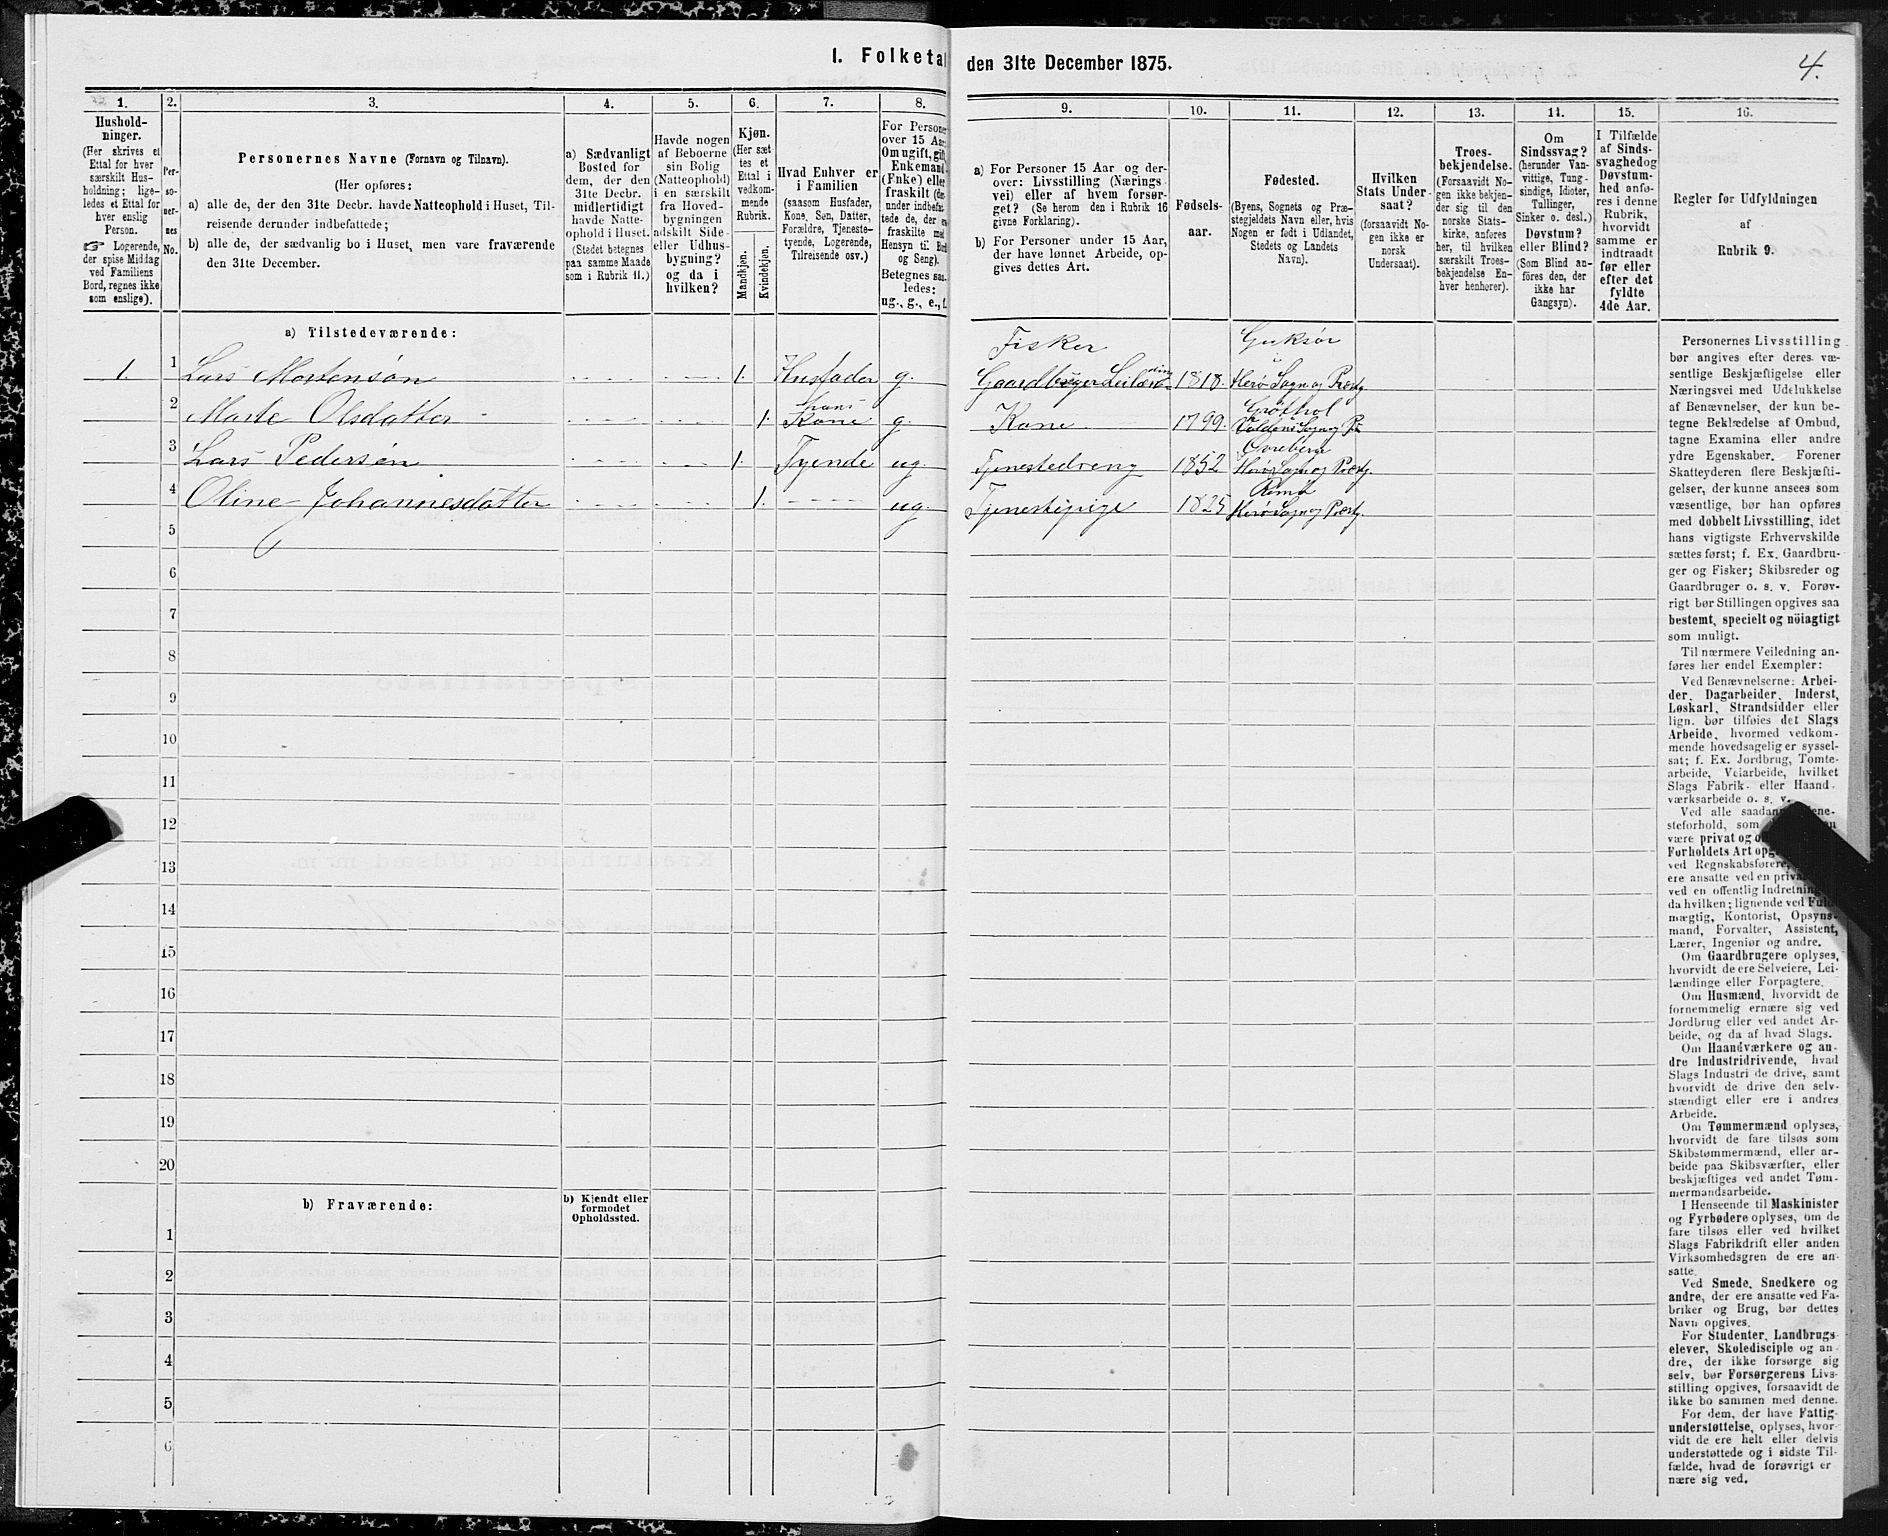 I. Folketal
den 31te December 1875.
4.
1.
2.
3.
4.
5.
6.
7.
8.
9.
10.
11.
12.
13.
14.
15.
16.
Hushold-
ninger.
(Her skrives et
Ettal for hver
særskilt Hus-
holdning; lige-
ledes et Ettal for
hver enslig
Person.
☞ Logerende,
der spise Middag
ved Familiens
Bord, regnes ikke
som enslige).
Per-
so-
ner-
nes
No.
Personernes Navne (Fornavn og Tilnavn).
(Her opføres:
a) alle de, der den 31te Decbr. havde Natteophold i Huset, Til-
reisende derunder indbefattede;
b) alle de, der sædvanlig bo i Huset, men vare fraværende
den 31te December.
a) Sædvanligt
Bosted for
dem, der den
31te Decbr.
midlertidigt
havde Natte-
ophold i Huset.
(Stedet betegnes
paa samme Maade
som i Rubrik 11.)
Havde nogen
af Beboerne
sin Bolig
(Natteophold)
i en særskilt
fra Hoved-
bygningen
adskilt Side-
eller Udhus-
bygning?
og da i
hvilken?
Kjøn.
(Her sæt-
tes et
Ettal i
vedkom-
mende
Rubrik.
Mandkjøn.
Kvindekjøn.
Hvad Enhver er
i Familien
(saasom Husfader,
Kone, Søn, Datter,
Forældre, Tjeneste-
tyende, Logerende,
Tilreisende osv.)
For Personer
over 15 Aar:
Om ugift, gift,
Enkemand
(Enke) eller
fraskilt (der-
under indbefat-
tede de, der ere
fraskilte med
Hensyn til Bord
og Seng).
Betegnes saa-
ledes:
ug., g., e., f.
a) For Personer 15 Aar og der-
over: Livsstilling (Nærings-
vei) eller af hvem forsør-
get? (Se herom den i Rubrik 16
givne Forklaring).
b) For Personer under 15 Aar,
der have lønnet Arbeide, op-
gives dettes Art.
Fødsels-
aar.
Fødested.
(Byens, Sognets og Præ-
stegjeldets Navn eller, hvis
Nogen er født i Udlandet,
Stedets og Landets
Navn).
Hvilken
Stats Under-
saat?
(forsaavidt No-
gen ikke er
norsk
Undersaat).
Troes-
bekjendelse.
(Forsaavidt No-
gen ikke bekjen-
der sig til den
norske Stats-
kirke, anføres
her, til hvilken
særskilt Troes-
bekjendelse En-
hver henhører).
Om
Sindssvag?
(herunder Van-
vittige, Tung-
sindige, Idioter,
Tullinger,
Sinker o. desl.)
Døvstum?
eller Blind?
(Som Blind an-
føres den, der
ikke har
Gangsyn).
I Tilfælde
af Sinds-
svaghed og
Døvstum-
hed anfø-
res i denne
Rubrik,
hvorvidt
samme er
indtraadt
før eller
efter det
fyldte
4de Aar.
Regler for Udfyldningen
af
Rubrik 9.
a) Tilstedeværende:
1. 1 Lars Mortensøn 1. Husfader g. Fisker Gaardbruger Leilænding 1818. Gurksør i Herø Sogn og Præstg
2 Marte Olsdatter 1. hans Kone g. Kone 1799.
3 Lars Pedersøn 1. Tyende ug. Tjenestedreng 1852 Herø Sogn og Præstg.
4 Oline Johannesdatter 1. ug. Tjenestepige 1825 Herø Sogn og Præstg.
5
6
7
8
9
10
11
12
13
14
15
16
17
18
19
20
b) Fraværende:
b) Kjendt eller
formodet
Opholdssted.
1
2
3
4
5
6
Personernes Livsstilling
bør angives efter deres væ-
sentlige Beskjæftigelse eller
Næringsvei med Udelukkelse
af Benævnelser, der kun be-
tegne Beklædelse af Ombud,
tagne Examina eller andre
ydre Egenskaber. Forener
Skatteyderen flere Beskjæfti-
gelser, der kunne ansees som
væsentlige, bør han opføres
med dobbelt Livsstilling, idet
hans vigtigste Erhvervskilde
sættes først; f. Ex. Gaardbru-
ger og Fisker; Skibsreder og
Gaardbruger o. s. v. Forøv-
rigt bør Stillingen opgives saa
bestemt, specielt og nöiagtigt
som muligt.
Til nærmere Veiledning an-
føres her endel Exempler:
Ved Benævnelserne: Arbei-
der, Dagarbeider, Inderst,
Løskarl, Strandsidder eller
lign. bør tilføies det Slags
Arbeide, hvormed vedkom-
mende hovedsagelig er syssel-
sat; f. Ex. Jordbrug, Tomte-
arbeide, Veiarbeide, hvilket
Slags Fabrik- eller Haand-
værksarbeide o. s. v.
Ved alle saadan
steforhold, som
være privat og
Forholdets Art
ved Regnskabsførere,
ere ansatte ved en
ved en offentlig Indretning
da hvilken; lignende ved Fuld-
mægtig, Kontorist, Opsyns-
mand, Forvalter, Assistent,
Lærer, Ingeniør og andre.
Om Gaardbrugere oplyses,
hvorvidt de ere Selveiere, Lei-
lændinge eller Forpagtere.
Om Husmænd, hvorvidt de
fornemmelig ernære sig ved
Jordbrug eller ved andet Ar-
beide, og da af hvad Slags.
Om Haandværkere og an-
dre Industridrivende, hvad
Slags Industri de drive, samt
hvorvidt de drive den selv-
stændigt eller ere i andres
Arbeide.
Om Tømmermænd oplyses,
hvorvidt de fare tilsøs som
Skibstømmermænd, eller ar-
beide paa Skibsværfter, eller
beskjæftiges ved andet Tøm-
mermandsarbeide.
I Henseende til Maskinister
og Fyrbødere oplyses, om de
fare tilsøs eller ved hvilket
Slags Fabrikdrift eller anden
Virksomhedsgren de ere an-
satte.
Ved Smede, Snedkere og
andre, der ere ansatte ved Fa-
briker og Brug, bør dettes
Navn opgives.
For Studenter, Landbrugs-
elever, Skoledisciple og an-
dre, der ikke forsørge sig
selv, bør Forsørgerens Livs-
stilling opgives, forsaavidt de
ikke bo sammen med denne.
For dem, der have Fattig-
understøttelse, oplyses, hvor-
vidt de ere helt eller delvis
understøttede og i sidste Til-
fælde, hvad de forøvrigt er-
nære sig ved.